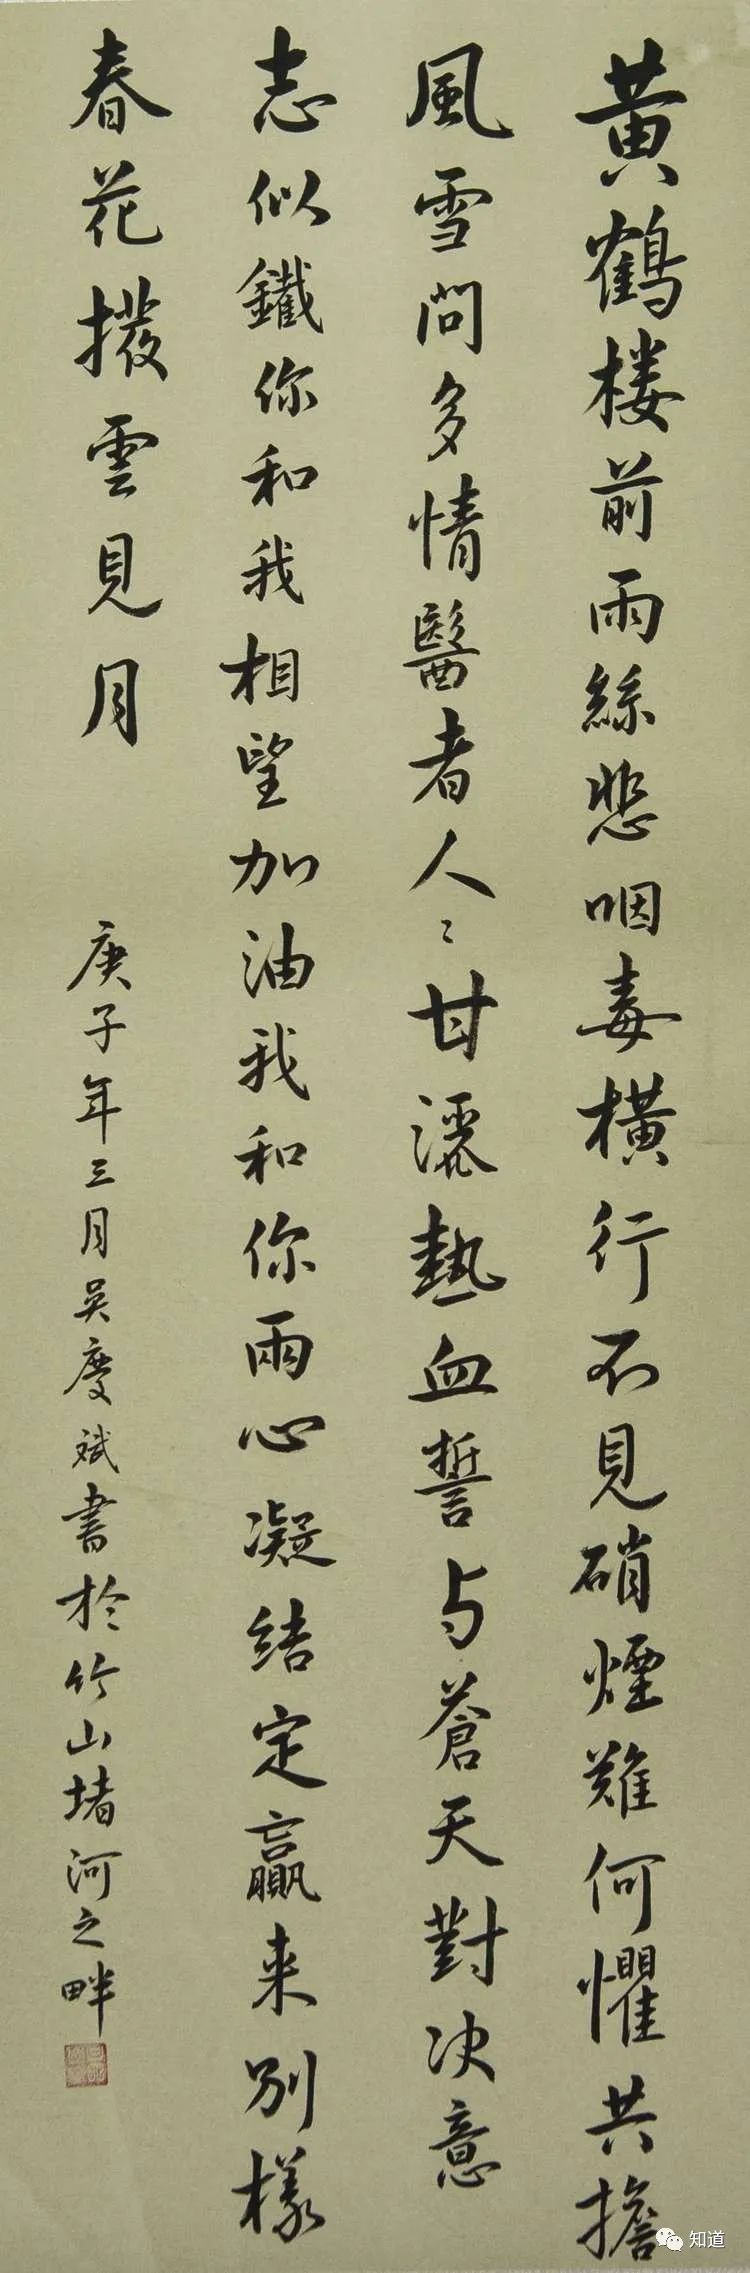 黄鶴楼前雨絲悲咽毒橫行不見硝煙難何懼共擔
風雪問多情醫者人〻甘灑熱血誓与蒼天對决意
志似鐵你和我相望加油我和你兩心凝结定贏来别樣
春花撥雲見月
庚子年三月吴慶斌書於竹山堵河之畔
知道